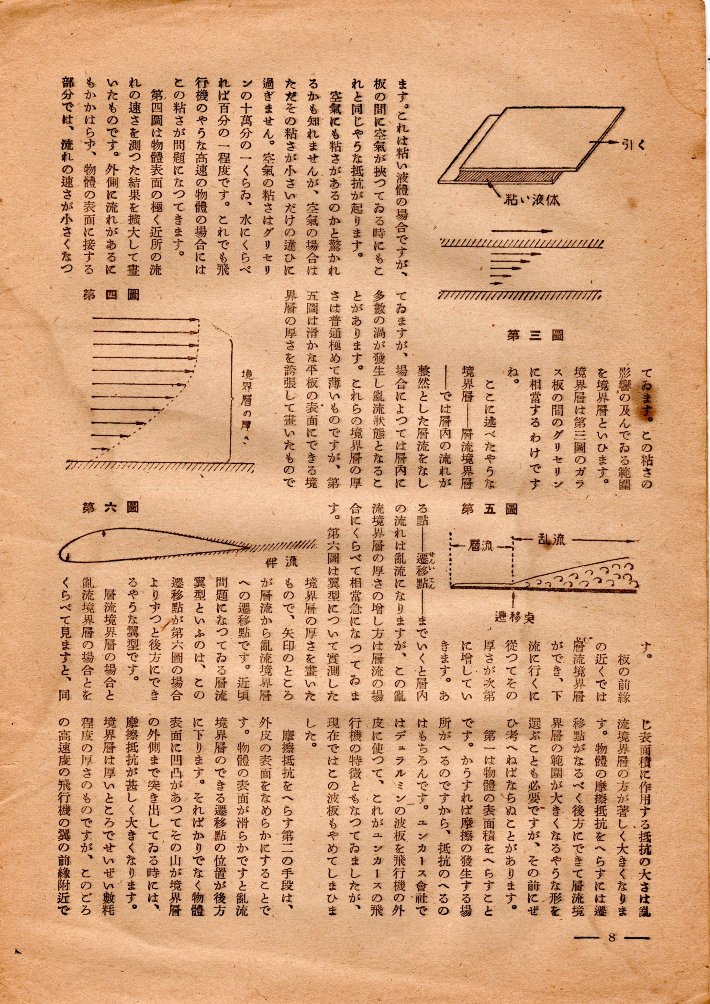 引く
粘い液体
第三圖
ます。これは粘い液體の場合ですが、
板の間に空氣が挾つてゐる時にもこ
れと同じやうな抵抗が起ります。
空氣にも粘さがあるのかと驚かれ
るかも知れませんが、空氣の場合は
ただその粘さが小さいだけの違ひに
過ぎません。空氣の粘さはグリセリ
ンの十萬分の一くらゐ、水にくらべ
れば百分の一程度です。これでも飛
行機のやうな高速の物體の場合には
この粘さが問題になつてきます。
第四圖は物體表面の極く近所の流
れの速さを測つた結果を擴大して畫
いたものです。外側に流れがあるに
もかかはらず、物體の表面に接する
部分では、流れの速さが小さくなつ
てゐます。この粘さの
影響の及んでゐる範圍
を境界層といひます。
境界層は第三圖のガラ
ス板の間のグリセリン
に相當するわけです
ね。
ここに述べたやうな
境界層――層流境界層
――では層内の流れが
整然とした層流をなし
てゐますが、場合によつては層内に
多數の渦が發生し亂流狀態となるこ
とがあります。これらの境界層の厚
さは普通極めて薄いものですが、第
五圖は滑かな平板の表面にできる境
界層の厚さを誇張して畫いたもので
第四圖
境界層の厚さ
第五圖
層流
乱流
遷移点
す。
板の前緣
の近くでは
層流境界層
ができ、下
流に行くに
從つてその
厚さが次第
に増してい
きます。あ
る點――遷移點――までいくと層内
せんいてん
の流れは亂流になりますが、この亂
流境界層の厚さの増し方は層流の場
合にくらべて相當急になつてゐま
す。第六圖は翼型について實測した
境界層の厚さを畫いた
もので、矢印のところ
が層流から亂流境界層
への遷移點です。近頃
問題になつてゐる層流
翼型といふのは、この
遷移點が第六圖の場合
よりずつと後方にでき
るやうな翼型です。
層流境界層の場合と
亂流境界層の場合とを
くらべて見ますと、同
第六圖
伴流
じ表面積に作用する抵抗の大さは亂
流境界層の方が著しく大きくなりま
す。物體の摩擦抵抗をへらすには遷
移點がなるべく後方にできて層流境
界層の範圍が大きくなるやうな形を
選ぶことも必要ですが、その前にぜ
ひ考へねばならぬことがあります。
第一は物體の表面積をへらすこと
です。かうすれば摩擦の發生する場
所がへるのですから、抵抗のへるの
はもちろんです。ユンカース會社で
はデュラルミンの波板を飛行機の外
皮に使つて、これがユンカースの飛
行機の特徵ともなつてゐましたが、
現在ではこの波板もやめてしまひま
した。
摩擦抵抗をへらす第二の手段は、
外皮の表面をなめらかにすることで
す。物體の表面が滑らかですと亂流
境界層のできる遷移點の位置が後方
に下ります。そればかりでなく物體
表面に凹凸があつてその山が境界層
の外側まで突き出してゐる時には、
摩擦抵抗が甚しく大きくなります。
境界層は厚いところでせいぜい數粍
程度の厚さのものですが、このごろ
の高速度の飛行機の翼の前緣附近で
― 8 ―